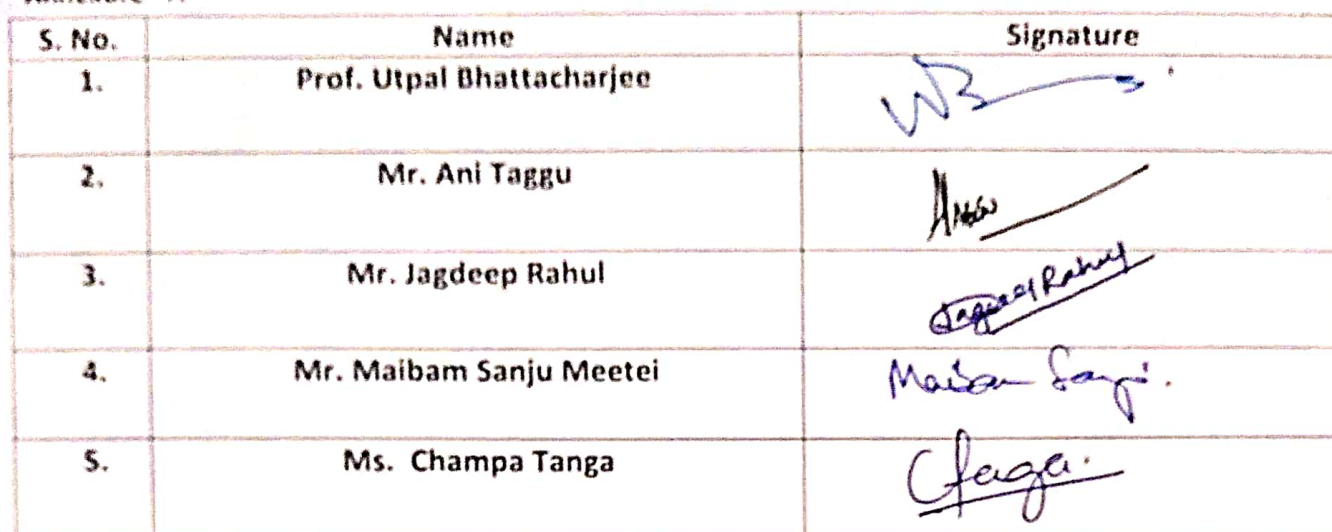 S. No. Name Signature
1. Prof. Utpal Bhattacharjee
2. Mr. Ani Taggu
3. Mr. Jagdeep Rahul Jagdeep Rahul
4. Mr. Maibam Sanju Meetei Maibam Sanju.
5. Ms. Champa Tanga